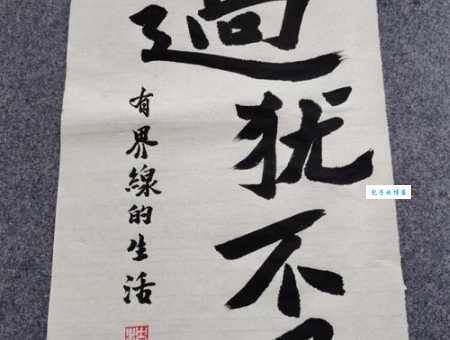 過犹不
有界線的生活